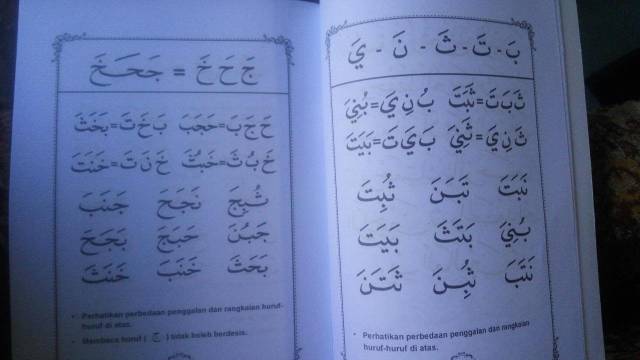 بَ - تَ - ثَ - نَ - يَ
ثَ بَ تَ=ثَبَتَ بُ نِ يَ=بُنِيَ
ثَ نِ يَ=ثَنِيَ بَ يَ تَ=بَيَتَ
نَبَتَ تَبَنَ ثُبِتَ
بُنِيَ بَتَثَ بَيَتَ
نَتَبَ ثُبِنَ ثَتَنَ
• Perhatikan perbedaan penggalan dan rangkaian
huruf-huruf di atas.
جَ حَ خَ = جَحَخَ
حَ جَ بَ=حَجَبَ بَ خَ ثَ=بَخَثَ
خَ بُ ثَ=خَبُثَ خَ نَ تَ=خَنَتَ
ثُبِجَ نَجَحَ جَنَبَ
جَبُنَ حَبَجَ بَجَحَ
بَحَثَ خَنَبَ خَنَثَ
• Perhatikan perbedaan penggalan dan rangkaian huruf-
huruf di atas.
• Membaca huruf ( ح ) tidak boleh berdesis.